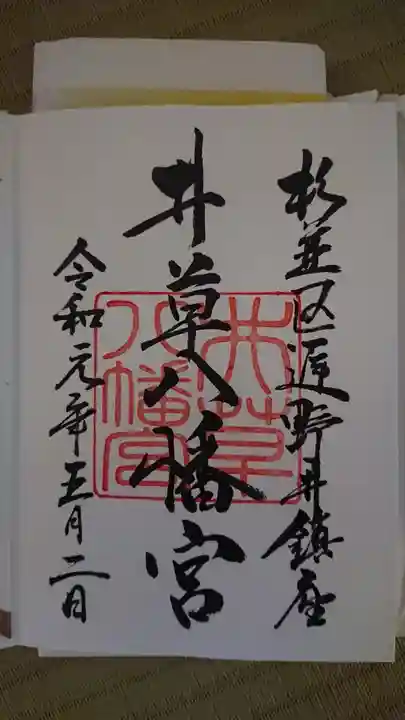 杉並区遅野井鎮座
井草八幡宮
令和元年五月二日
井草
八幡宮